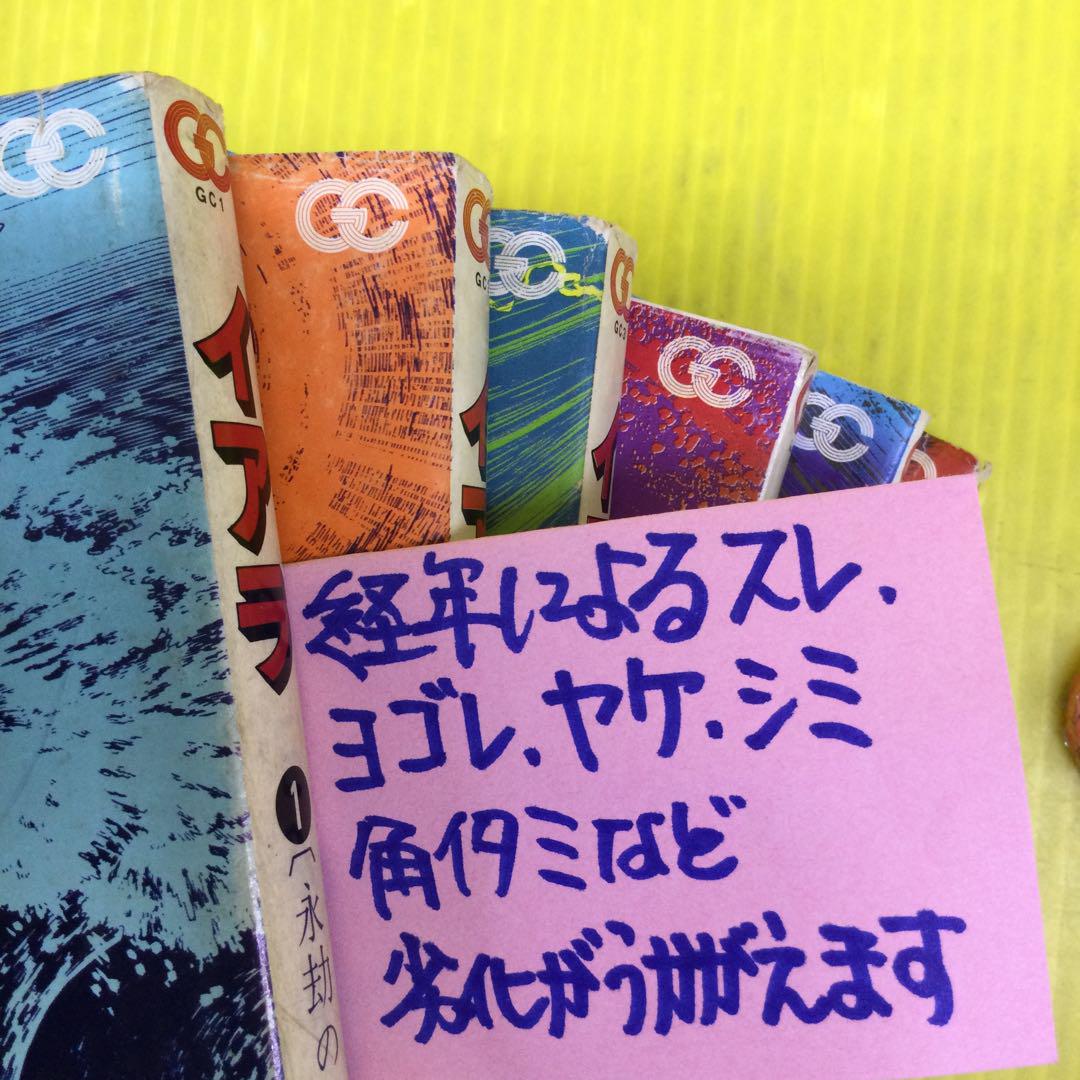 GC
GC
GC1
イアラ
1
永劫の
GC
GC
GC
GC
GC3
GC
GC
経年によるスレ、
ヨゴレ、ヤケ、シミ
角イタミなど
劣化がうかがえます